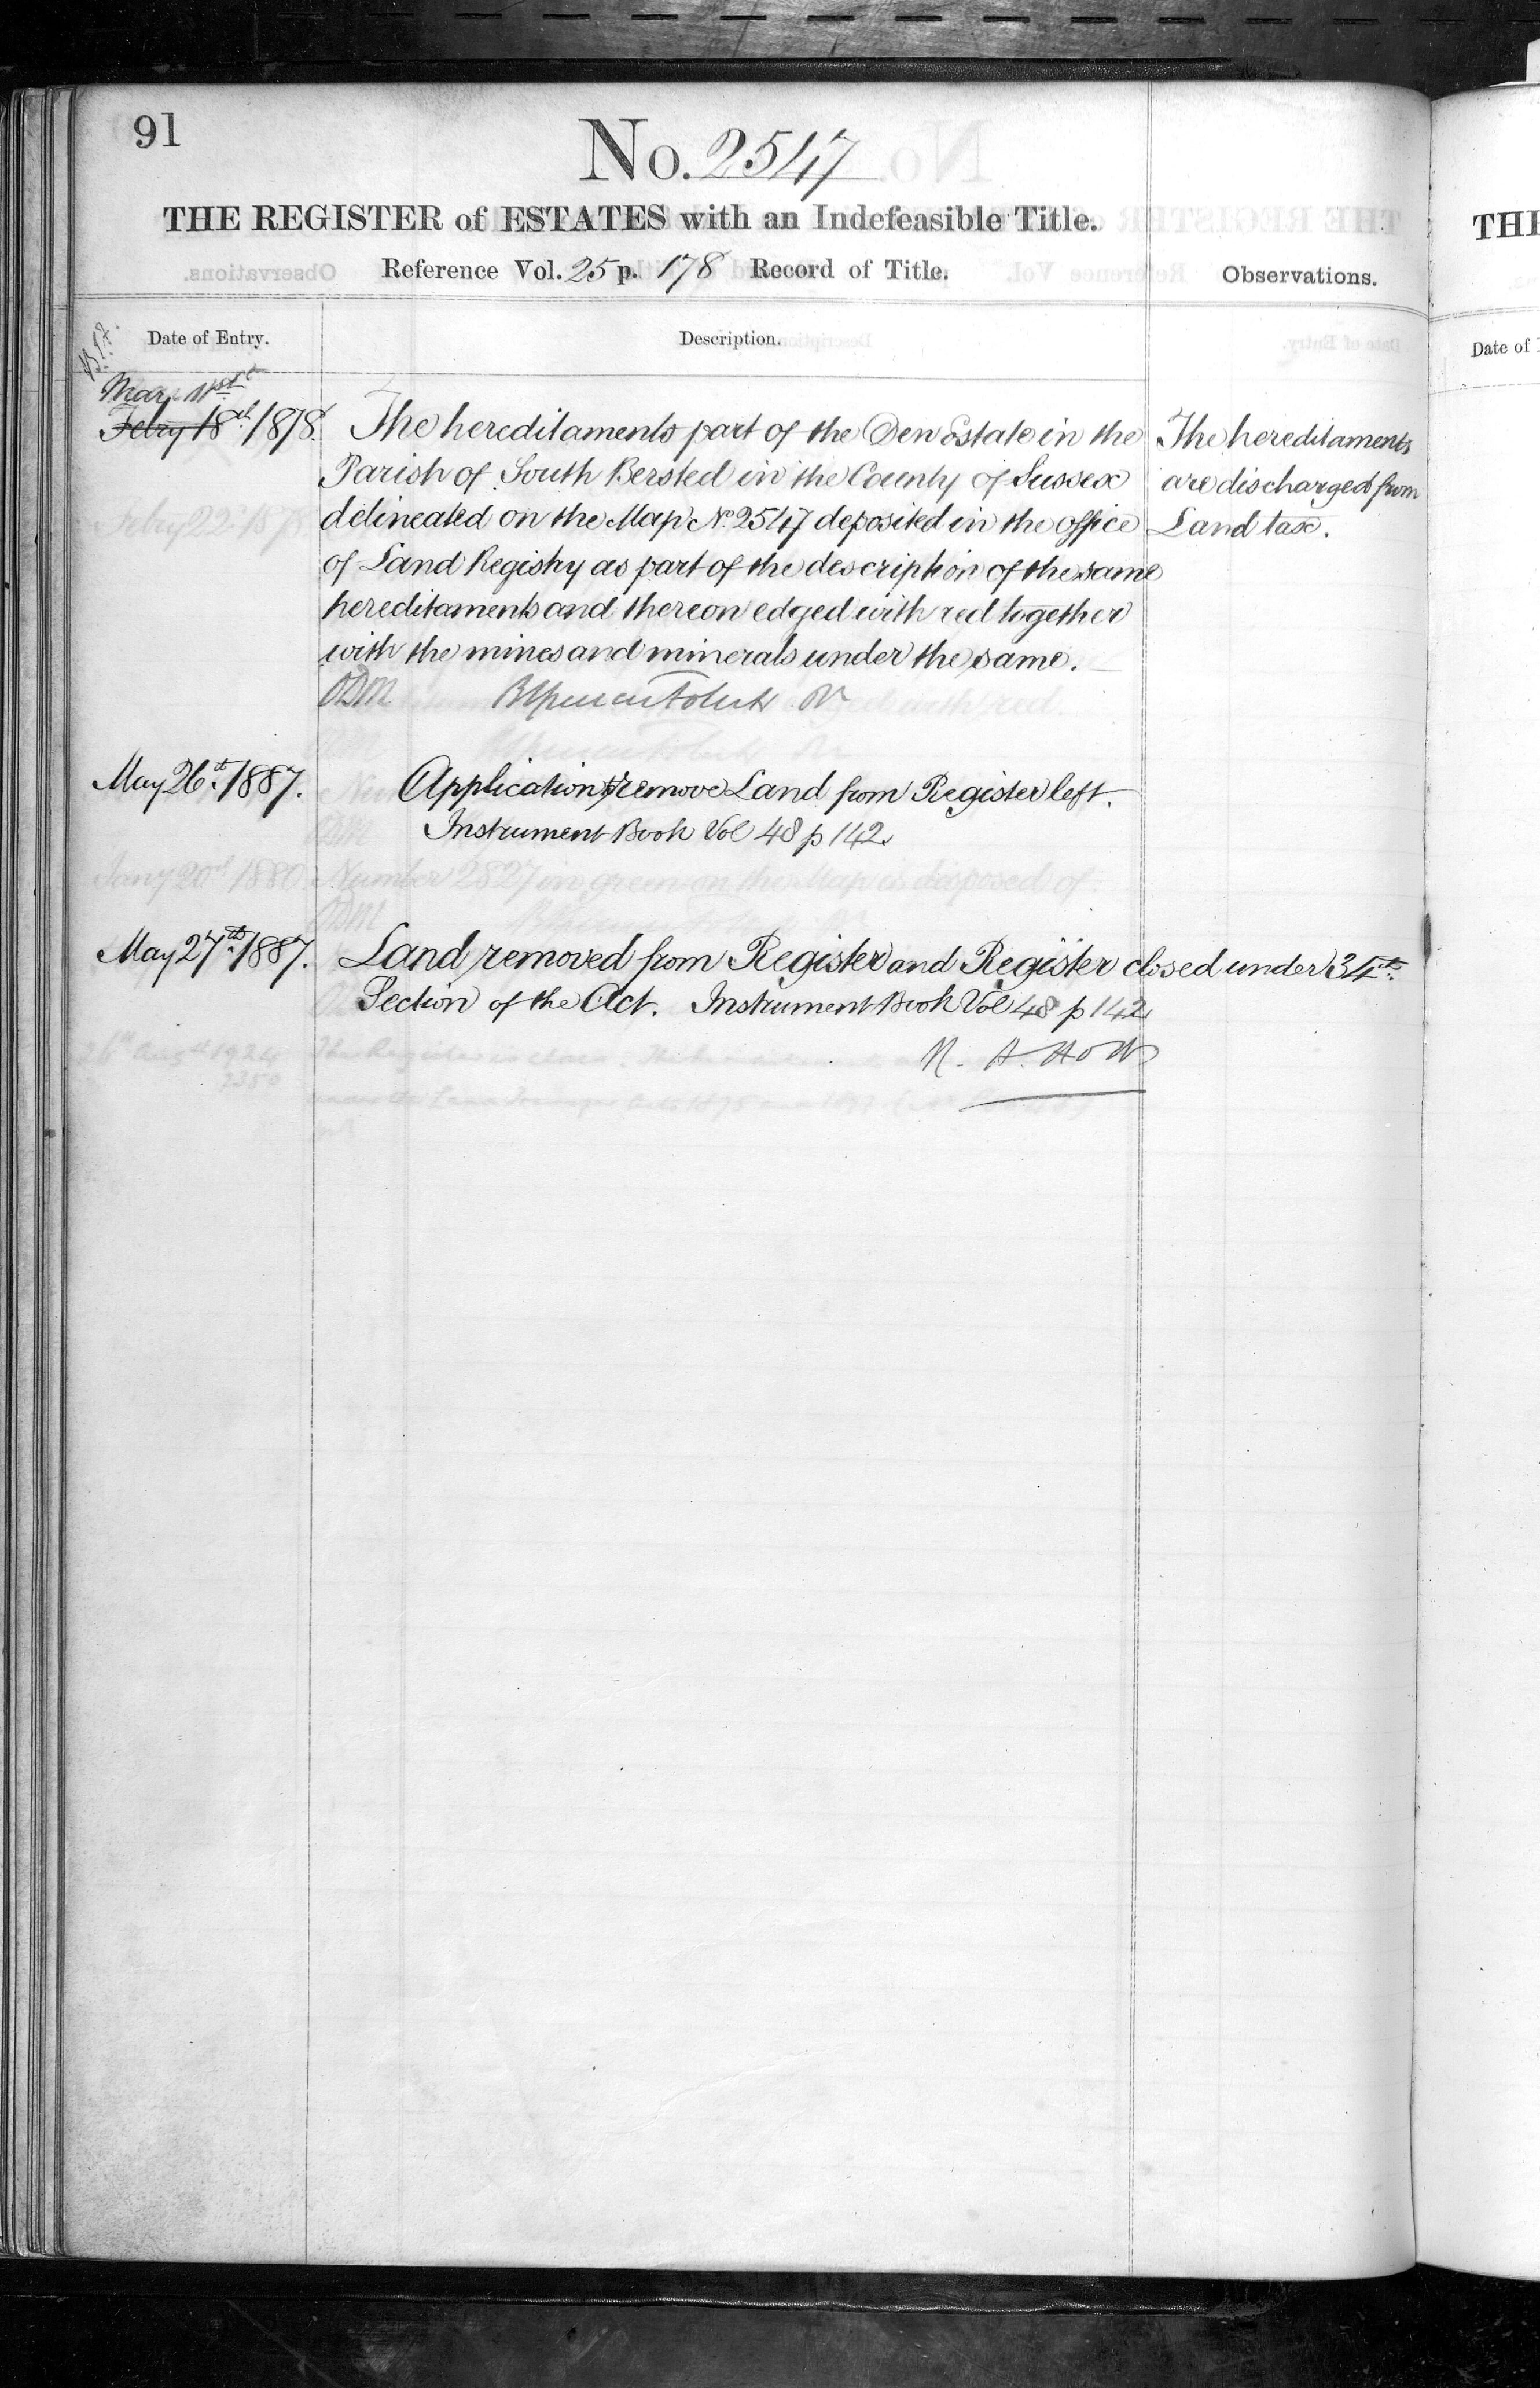 91
No. 2547
THE REGISTER of ESTATES with an Indefeasible Title.
Reference Vol. 25 p. 178 Record of Title.
Observations.
Date of Entry.
Description.
Mar 11th
Febry 18th 1878. The hereditaments part of the Den Estate in the
Parish of South Bersted in the County of Sussex
delineated on the Map No. 2547 deposited in the office
of Land Registry as part of the description of the same
hereditaments and thereon edged with red together
with the mines and minerals under the same.
ODM
The hereditaments
are discharged from
Land tax.
May 26th 1887. Application to remove Land from Register left.
Instrument Book Vol 48 p 142.
Jany 20th 1880 Number 2827 in green on the Map is disposed of.
ODM
May 27th 1887. Land removed from Register and Register closed under 34th
Section of the Act. Instrument Book Vol 48 p 142
26th Augst 1924
THE
Date of